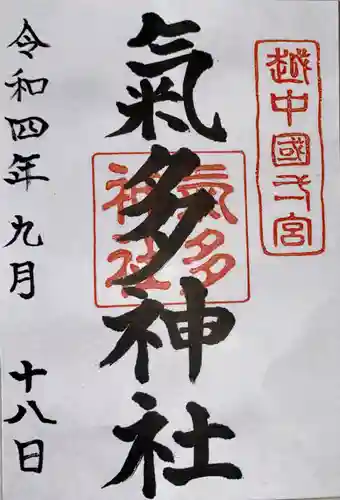 越中國一宮
氣多神社
氣多神社
令和四年九月 十八日